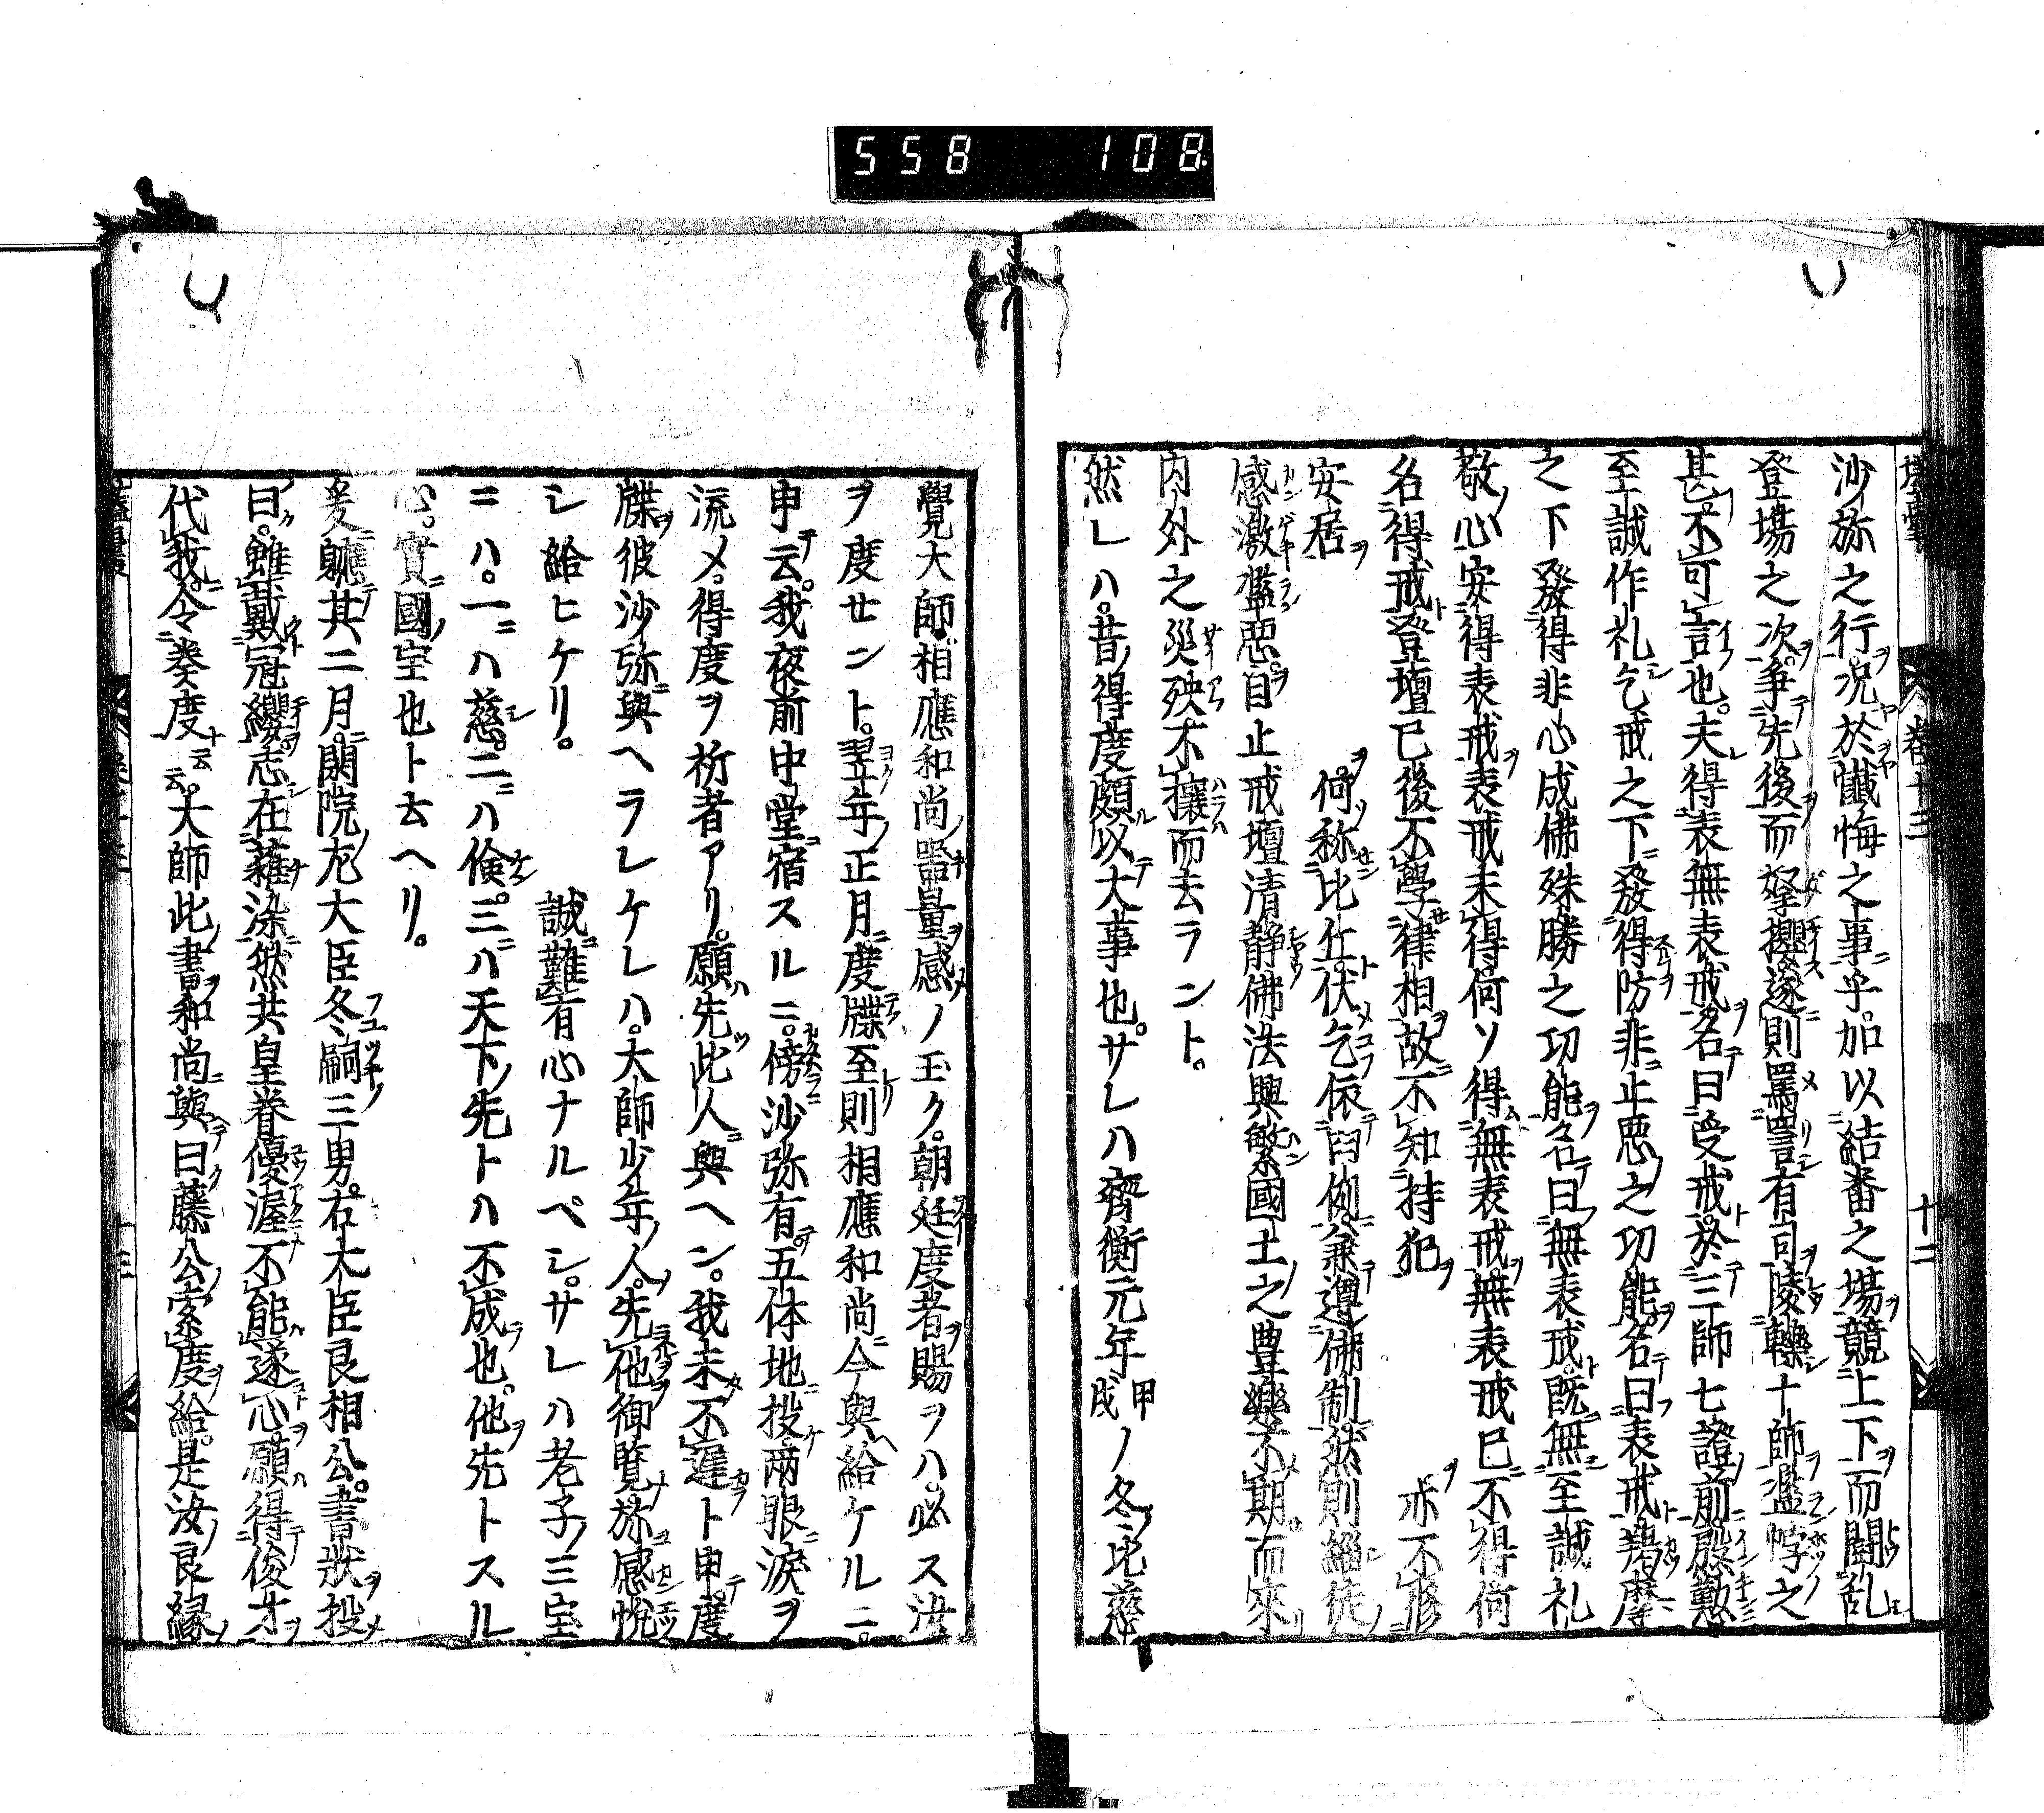 558 108
沙旀之行況於懺悔之事乎加以結番之場競上下而鬪乱
登場之次爭先後而拏攫遂則罵詈有司陵轢十師濫悖之
甚不可言也。夫得表無表戒名曰受戒於三師七證前慇懃
至誠作礼乞戒之下發得防非止悪之功能名曰表戒羯摩
之下發得非心成佛殊勝之功能名曰無表戒既無至誠礼
敬心安得表戒表戒未得何ソ得無表戒無表戒已不得何
名得戒登壇已後不學律相故不知持犯 亦不修
安居 何称比丘伏乞依旧例兼遵佛制然則緇徒
感激濫悪自止戒壇清静佛法興繁國土之豊樂不期而來
内外之災殃不攘而去ラント。
然レハ。昔得度頗以大事也。サレハ齊衡元年甲戌ノ冬比慈
覺大師相應和尚器量感ノ玉ク。朝廷度者賜ヲハ。必ス汝
ヲ度センント。翌年正月度牒至則相應和尚今與給ケルニ。
申云。我夜前中堂宿スルニ。傍沙弥有五体地投兩眼淚ヲ
流メ。得度ヲ祈者アリ。願先此人與ヘン。我未不遲ト申。度
牒彼沙弥與ヘラレケレハ。大師少年人。先他御覽旀感悦
シ給ヒケリ。 誠難有心ナルペシ。サレハ老子三宝
ニハ。一ハ慈。二ハ倹。三ハ天下先トハ不成也。他先トスル
心。實國宝也ト云ヘリ。
爰軈其二月。閑院左大臣冬嗣三男。右大臣良相公。書狀投
曰。雖戴冠纓志在薙染然共皇眷優渥不能遂心願得俊才
代我。令奏度云云。大師此書和尚與曰藤公索度給。是汝良緣
卷十三
十二